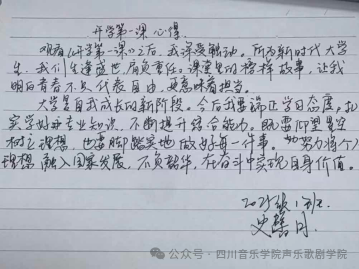 开学第一课心得
观看《开学第一课》之后，我深受触动。所为新时代大学
生，我们生逢盛世，肩负重任。课堂里的榜样故事，让我
明白青春不只代表自由，更意味着担当。
大学是自我成长的新阶段。今后我要端正学习态度，扎
实学好专业知识，不断提升综合能力。既要仰望星空
树立理想，也要脚踏实地做好每一件事。努力将个人
理想融入国家发展，不负韶华，在奋斗中实现自身价值。
2025级1班
公众号·四川音乐学院声乐歌剧学院